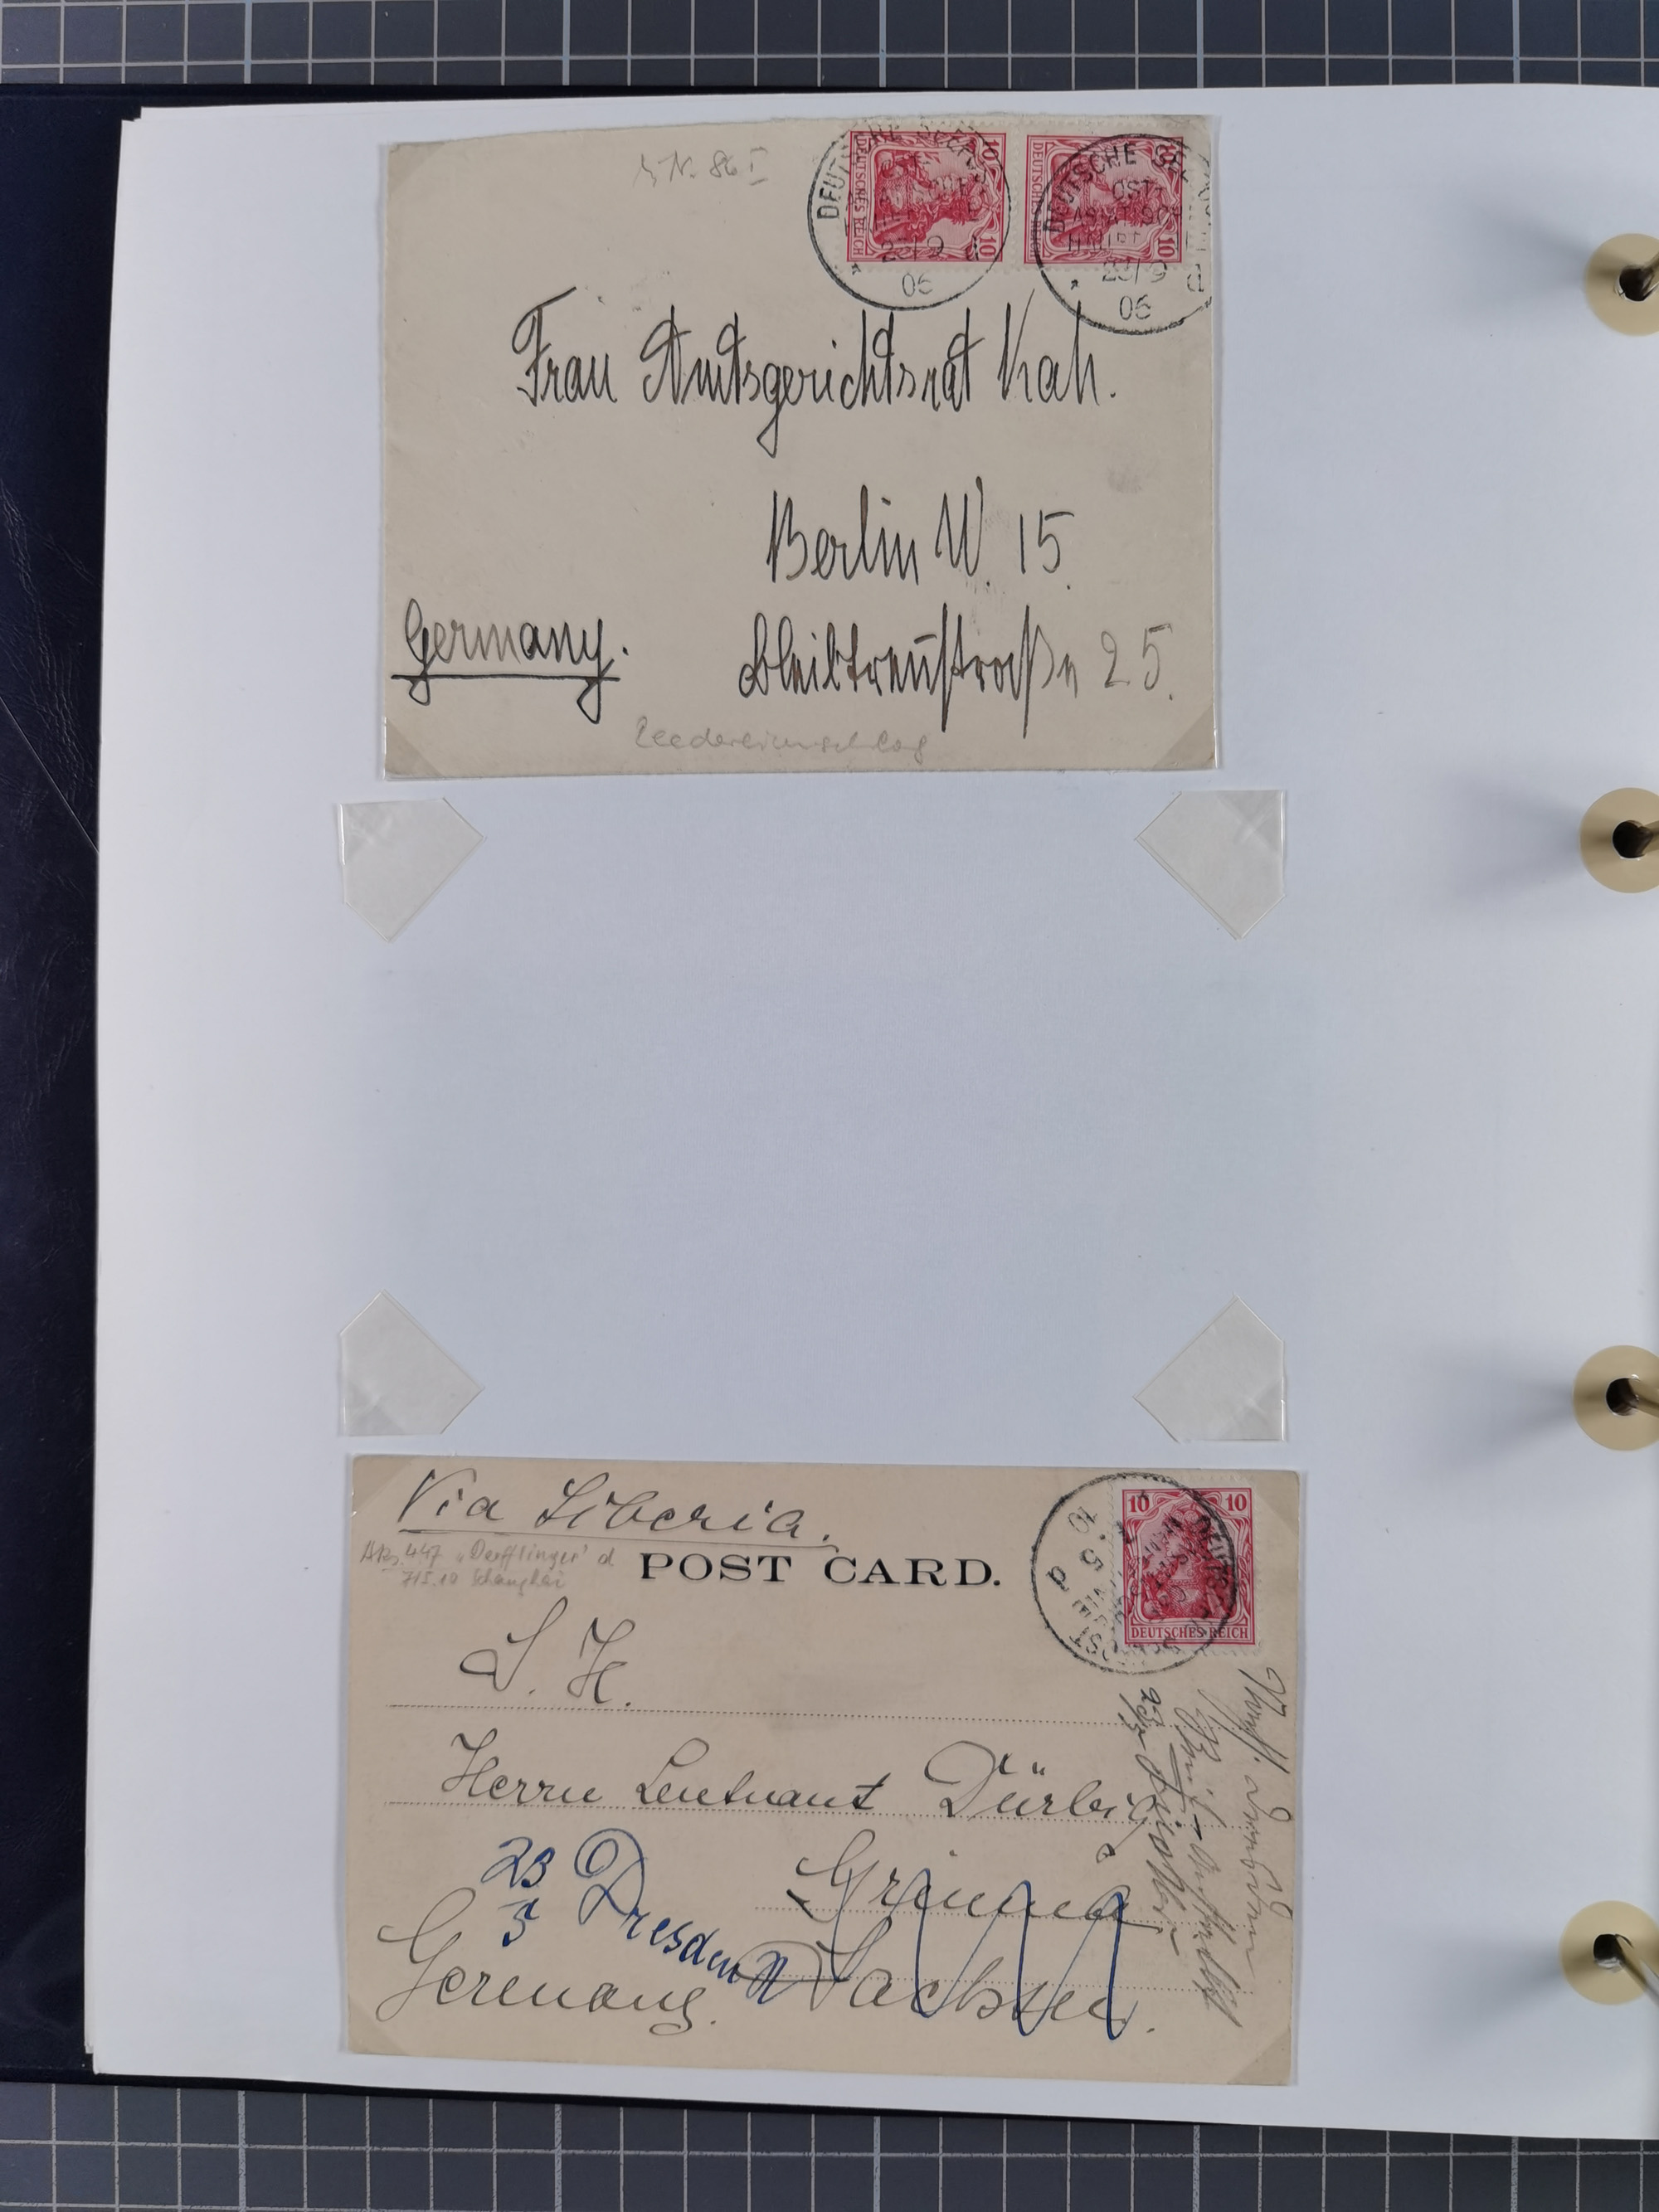 N. 86 I
DEUTSCHE SEEPOST
OST-
HAUPT
23/9 d
06
10
DEUTSCHES REICH
10
DEUTSCHE SEE
OST-
HAUPT
23/9
06
d
DEUTSCHES REICH
10
Frau Amtsgerichtsrat Kah.
Berlin W. 15.
Germany.
Bleibtreustraße 25.
Reedereiumschlag
Via Siberia.
447 "Derfflinger" d
7/5.10 Schanghai
POST CARD.
10 10
DEUTSCHES REICH
10. 5
d
S. H.
Herrn Leutnant Dürbig
23
5
Dresden N
Grimma
Sachsen.
Germany.